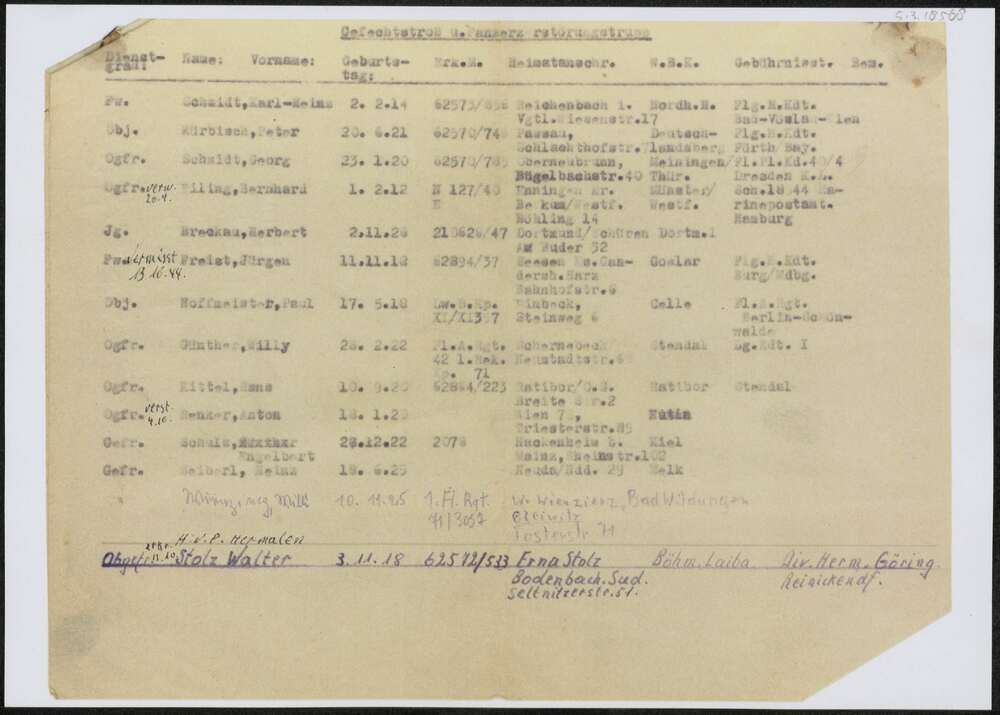 5.3.18568
Gefechtstroß u. Panzerz rstörungstrupp
Dienst- Name: Vorname: Geburts- Erk.M. Heimatanschr. W.B.K. Gebührnisst. Bem.
grad: tag:
Fw. Schmidt,Karl-Heinz 2. 2.14 62573/ Reichenbach i. Nordh.H. Flg.H.Kdt.
Vgtl.Wiesenstr.17 Bad-Vöslau-Wien
Obj. Kürbisch,Peter 20. 6.21 62570/74 Passau, Deutsch- Flg.H.Kdt.
Schlachthofstr. landsberg Fürth/Bay.
Ogfr. Schmidt,Georg 23. 1.20 62570/78 Oberneubrunn, Meiningen/ Fl.Pl.Kd.40/4
Bügelbachstr.40 Thür. Dresden
Ogfr. verw. Eiling,Bernhard 1. 2.12 N 127/40 Enningen Kr. Münster/ Sch.18 44 Ma-
20.4. E Beckum/Westf. Westf. rinepostamt.
Böhling 14 Hamburg
Jg. Breckau,Herbert 2.11.26 210626/47 Dortmund/Schüren Dortm.1
Am Ruder 32
Fw. vermisst Freist,Jürgen 11.11.18 62894/37 Seesen Ks.Gan- Goslar Flg.H.Kdt.
13.10.44. dersh.Harz Burg/Mdbg.
Bahnhofstr.6
Obj. Hoffmeister,Paul 17. 5.18 Lw.B.Kp. Einbeck, Celle Fl.A.Rgt.
XI/XI357 Steinweg 6 Berlin-Schön-
walde
Ogfr. Günther,Willy 28. 2.22 Fl.A.Rgt. Schernebeck Stendal Lg.Kdt. I
42 l.Rek. Neustadtstr.6
Kp. 71
Ogfr. Kittel,Hans 10. 9.20 62894/223 Ratibor/O.S. Ratibor Stendal
Breite Str.2
Ogfr. verst. Henker,Anton 18. 1.20 Wien 75, Eutin
4.10. Triesterstr.
Gefr. Schulz, 29.12.22 2078 Hackenheim b. Kiel
Engelbert Mainz,Rheinstr.102
Gefr. Seiberl, Heinz 18. 6.25 Neuda/Ndd. 29 Melk
10.11.25 1. Fl. Rgt. W. Wienzierz, Bad Wildungen
71/3057 Gleiwitz
H.v.P. Hermalen
Obgefr. 13.10. Stolz Walter 3.11.18 62572/533 Erna Stolz Böhm. Laiba Div. Herm. Göring
Bodenbach. Sud. Reinickendf.
Seltnitzerstr. 51.